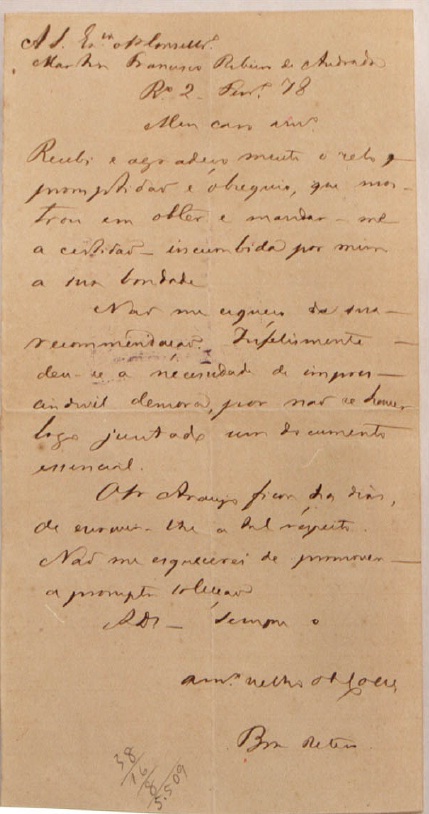 A S. Ex.cia o Sr Conselhr.
Martim Francisco Ribeiro de Andrada
Ro. 2 Fevr. 78
Meu caro am.o
Recebi e agradeço muito o zelo,
promptidão e obsequio, que mos-
trou em obter e mandar-me
a certidão incumbida por mim
a sua bondade
Não me esqueci da sua
recommendação. Infelizmente
deu-se a necessidade de impres-
cindivel demora, por não se haver
logo juntado um documento
essencial.
O Dr Araujo ficou, ha dias,
de escrever-lhe a tal respeito.
Não me esquecerei de promover
a prompta solução
ADs Sempre o
am.o velho
Bom Retiro
38/16/98
5.509